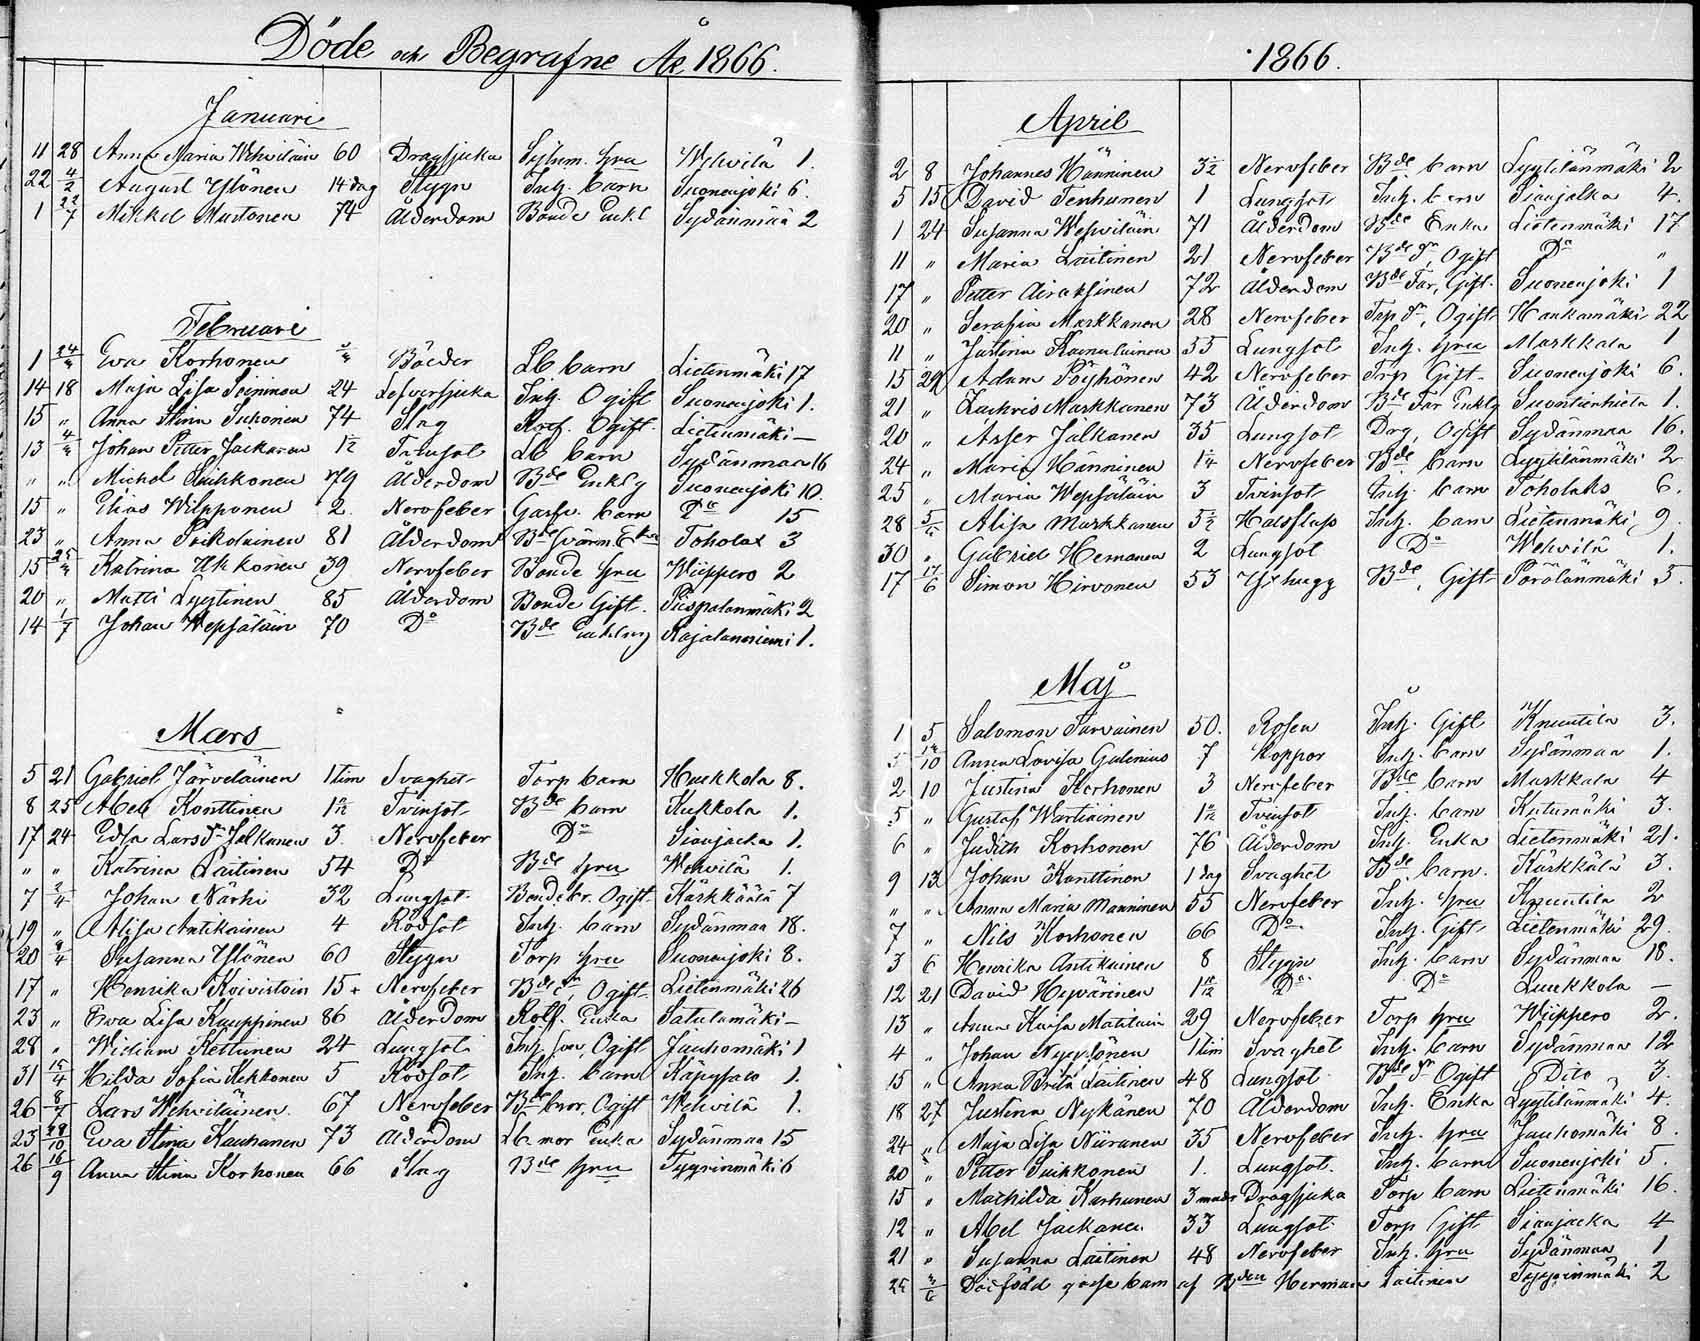 Döde och Begrafne År 1866.
Januari
11 28 Anna Maria Wehviläin 60 Dragsjuka Sytnm. hru Wehvilä 1.
22 4/2 August Ylönen 14 dag Stygn Inh. barn Suonenjoki 6.
1 22/7 Mikkel Mustonen 74 Ålderdom Bonde Enkl Sydänmaa 2
Februari
1 24/2 Eva Korhonen Bölder Lb barn Lietenmäki 17
14 18 Maja Lisa Soininen 24 Lefversjuka Inh. Ogift Suonenjoki 1.
15 " Anna Stina Suhonen 74 Slag Ogift. Lietenmäki —
13 4/ Johan Petter Jackanen 1½ Tvinsot Lb barn Sydänmaa 16
" " Michel Suhkonen 79 Ålderdom Bde Enklg Suonenjoki 10.
15 " Elias Wilpponen 2. Nervfeber barn Do 15
23 " Anna Puikolainen 81 Ålderdom Bde Svärm. Toholax 3
15 25/ Katrina Ukkonen 39 Nervfeber Bonde hru Wiippero 2
20 " Matti Lyytinen 85 Ålderdom Bonde Gift. Piispalanmäki 2
14 1/7 Johan Wepsäläin 70 Do Bde Enklng Rajalanniemi 1.
Mars
5 21 Gabriel Järveläinen 1 tim Svaghet Torp barn Hukkola 8.
8 25 Abel Konttinen Tvinsot Bde barn Kukkola 1.
17 24 Edla Larsdr Jalkanen 3. Nervfeber Do Siaujacka 1.
" " Katrina Laitinen 54 Do Bde hru Wehvilä 1.
7 2/4 Johan Närhi 32 Lungsot. Bonde br. Ogift Kärkkäälä 7
19 " Alisa Antikainen 4 Rödsot Inh. barn Sydänmaa 18.
20 4/4 Susanna Ylönen 60 Stygn Torp hru Suonenjoki 8.
17 " Henrika Koivistoin 15 Nervfeber Bde dr, Ogift Lietenmäki 26
23 " Ewa Lisa Kauppinen 86 Ålderdom Rotf. Enka Satulamäki —
28 " William Kettunen 24 Lungsot Inh. son, Ogift Jauhomäki 1
31 15/4 Hilda Sofia Kekkonen 5 Rödsot Inh. barn 1.
26 8/7 Lars Wehviläinen 67 Nervfeber Bde bror, Ogift Wehvilä 1.
23 29/10 Eva Stina Kauhanen 73 Ålderdom Lb. mor Enka Sydänmaa 15
26 16/9 Anna Stina Korhonen 66 Slag Bde hru Tyyrinmäki 6
1866.
April
2 8 Johannes Hänninen 3½ Nervfeber Bde barn Lyytilänmäki 2
5 15 David Tenhunen 1 Lungsot Inh. barn Siaujalka 4.
1 24 Susanna Wehviläin 71 Ålderdom Bde Enka Lietenmäki 17
11 " Maria Laitinen 21 Nervfeber Bde dr, Ogift Do "
17 " Petter Airaksinen 72 Ålderdom Bde Far, Gift. Suonenjoki 1
20 " Serafia Markkanen 28 Nervfeber Torp dr, Ogift Haukamäki 22
11 " Justina Kainulainen 55 Lungsot Inh. hru Markkala 1
15 29 Adam Pöyhönen 42 Nervfeber Trp Gift Suonenjoki 6.
21 " Zachris Markkanen 73 Ålderdom Bde Far Enklg Suontienhieta 1.
20 " Asser Jalkanen 35 Lungsot Drg, Ogift Sydänmaa 16.
24 " Maria Hänninen 1¼ Nervfeber Bde barn Lyytilänmäki 2
25 " Maria Wepsäläin 3 Tvinsot Inh. barn Toholaks 6.
28 5/ Alisa Markkanen 5½ Halsfluss Inh. barn Lietenmäki 9.
30 " Gabriel Hemanen 2 Lungsot Do Wehvilä 1.
17 17/6 Simon Hirvonen 53 Yxhugg Bde, Gift Pörölänmäki 5.
Maj
1 5 Salomon Tarvainen 50. Rosen Inh. Gift Knuutila 3.
5 /10 Anna Lovisa Galenius 7 Koppor Inh. barn Sydänmaa 1.
2 10 Justina Korhonen 3 Nervfeber Bde barn Markkala 4
5 " Gustaf Wartiainen Tvinsot Inh. barn Kutumäki 3.
6 " Judith Korhonen 76 Ålderdom Inh. Enka Lietenmäki 21.
9 13 Johan Konttinen 1 dag Svaghet Bde barn. Kärkkälä 3.
" " Anna Maria Manninen 55 Nervfeber Inh. hru Knuutila 2
7 " Nils Korhonen 66 Do Inh. Gift Lietenmäki 29.
3 6 Henrika Antikainen 8 Stygn Inh. barn Sydänmaa 18.
12 21 David Hyvärinen Do Do Luukkola —
13 " Anna Kaisa Matilain 29 Nervfeber Torp hru Wiippero 2.
4 " Johan Nyyssönen 1 tim Svaghet Inh. barn Sydänmaa 12
15 " Anna Brita Laitinen 48 Lungsot Bde dr Ogift Dito 3.
18 27 Justina Nykänen 70 Ålderdom Inh. Enka Lyytilänmäki 4.
24 " Maja Lisa Niiranen 35 Nervfeber Inh. hru Jauhomäki 8.
20 " Petter Suihkonen 1. Lungsot. Inh. barn Suonenjoki 5.
15 " Mathilda Karhunen 3 mnadr Dragsjuka Torp barn Lietenmäki 16.
12 " Abel Jackanen 33 Lungsot Torp Gift Siaujacka 4
21 " Susanna Laitinen 48 Nervfeber Inh. hru Sydänmaa 1
25 3/6 Dödfödd gosse barn af Bden Herman Laitinen Tyyrinmäki 2